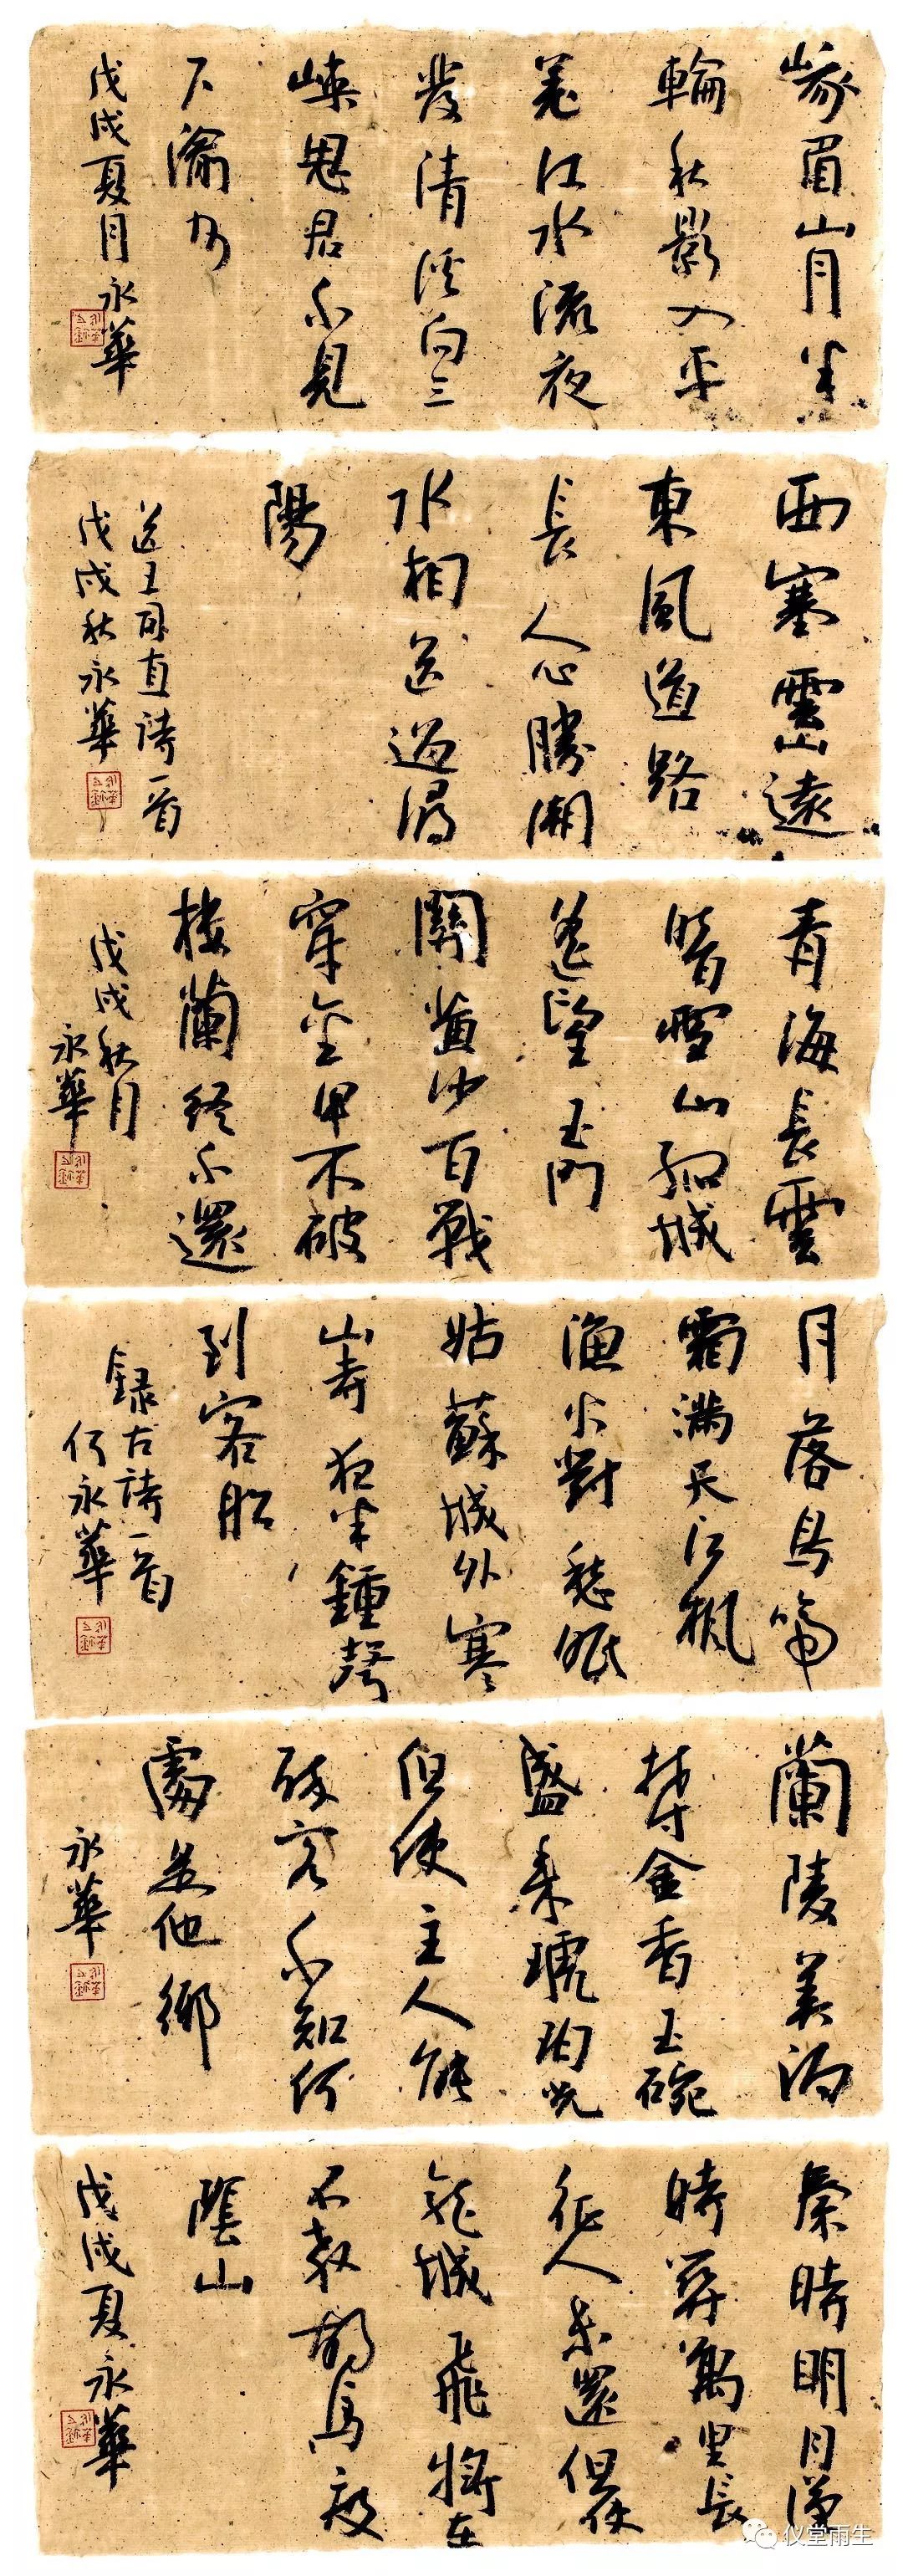 峨眉山月半
輪秋影入平
羌江水流夜
發清溪向三
峽思君不見
下渝州
戊戌夏月永華
西塞雲山遠
東風道路
長人心勝潮
水相送過潯
陽
送王司直詩一首
戊戌秋永華
青海長雲
暗雪山孤城
遙望玉門
關黃沙百戰
穿金甲不破
樓蘭終不還
戊戌秋月
永華
月落烏啼
霜滿天江楓
漁火對愁眠
姑蘇城外寒
山寺夜半鍾聲
到客船
録古詩一首
何永華
蘭陵美酒
欝金香玉碗
盛來琥珀光
但使主人能
醉客不知何
處是他鄉
永華
秦時明月漢
時關萬里長
征人未還但使
龍城飛將在
不教胡馬度
陰山
戊戌夏永華
仪堂雨生